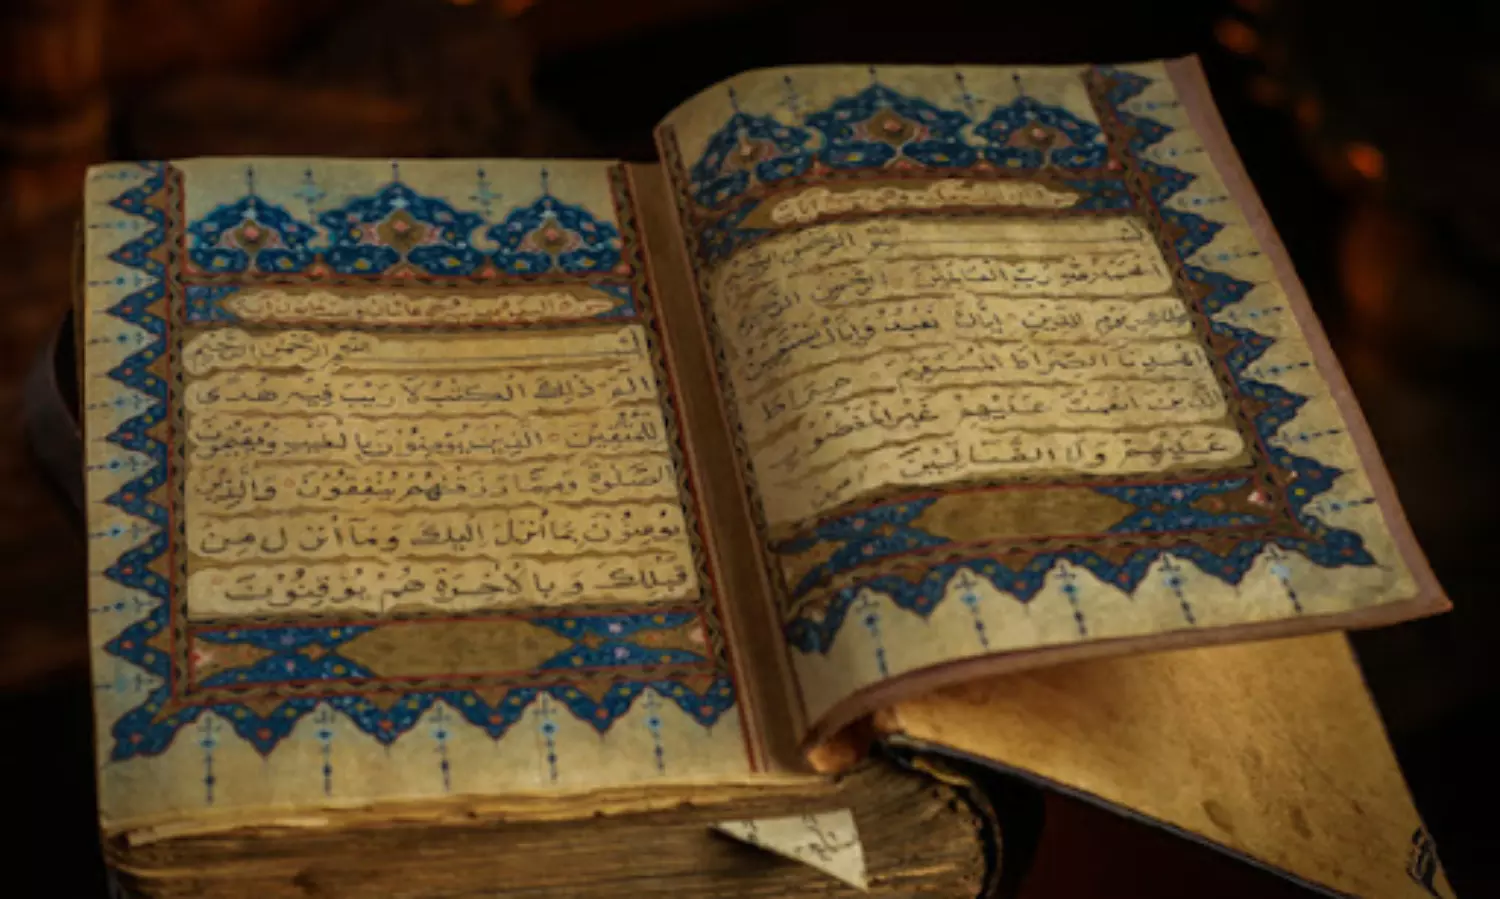 بسم الله الرحمن الرحيم
الحمد لله رب العالمين الرحمن الرحيم
ملك يوم الدين إياك نعبد وإياك نستعين
اهدنا الصراط المستقيم صراط
الذين أنعمت عليهم غير المغضوب
عليهم ولا الضالين
بسم الله الرحمن الرحيم
الم ذلك الكتب لا ريب فيه هدى
للمتقين الذين يؤمنون بالغيب ويقيمون
الصلوة ومما رزقنهم ينفقون والذين
يؤمنون بما أنزل إليك وما أنزل من
قبلك وبالآخرة هم يوقنون